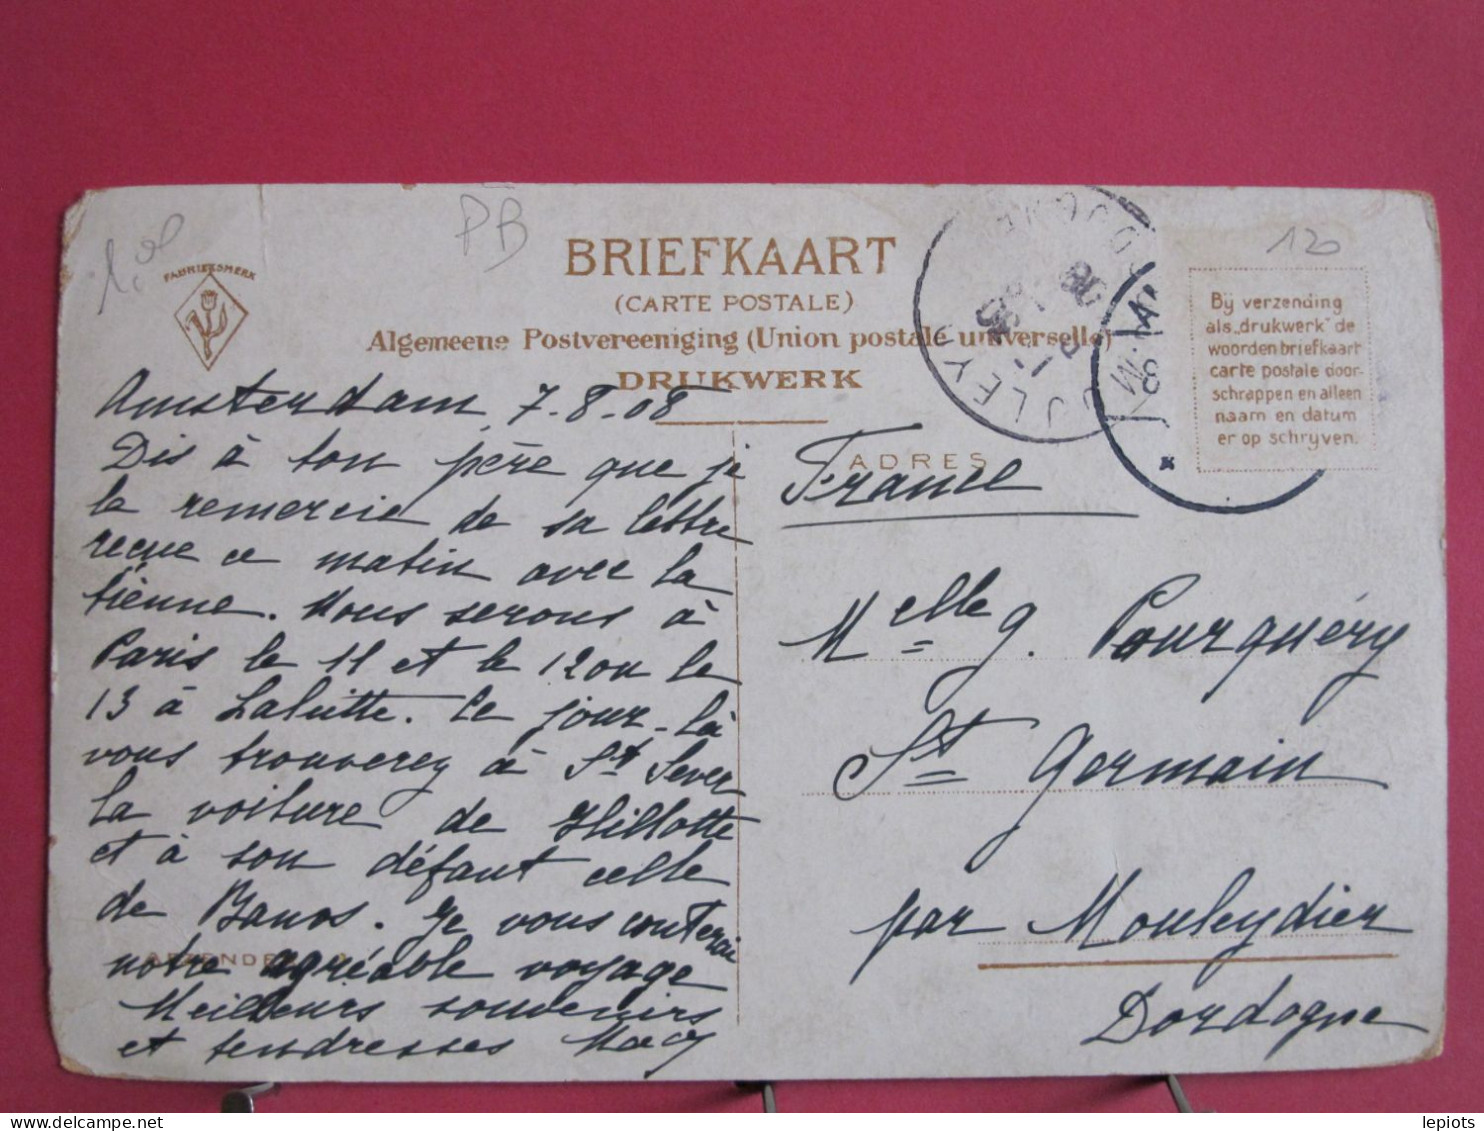 1,00
PB
120
FABRIEKSMERK
BRIEFKAART
(CARTE POSTALE)
Algemeene Postvereeniging (Union postale universelle)
DRUKWERK
Bij verzending
als „drukwerk" de
woorden briefkaart
carte postale door-
schrappen en alleen
naam en datum
er op schrijven.
Amsterdam 7.8.08
Dis à ton père que je
le remercie de sa lettre
reçue ce matin avec la
tienne. Nous serons à
Paris le 11 et le 12 ou le
13 à Lalutte. Ce jour-là
vous trouverez à St Sever
la voiture de Hillotte
et à son défaut celle
de Banos. Je vous conterai
notre agréable voyage
Meilleurs souvenirs
et tendresses
AFZENDER
ADRES
France
Melle G. Pourquéry
St Germain
par Mouleydier
Dordogne
MOULEYDIER
DORDOGNE
lepiots